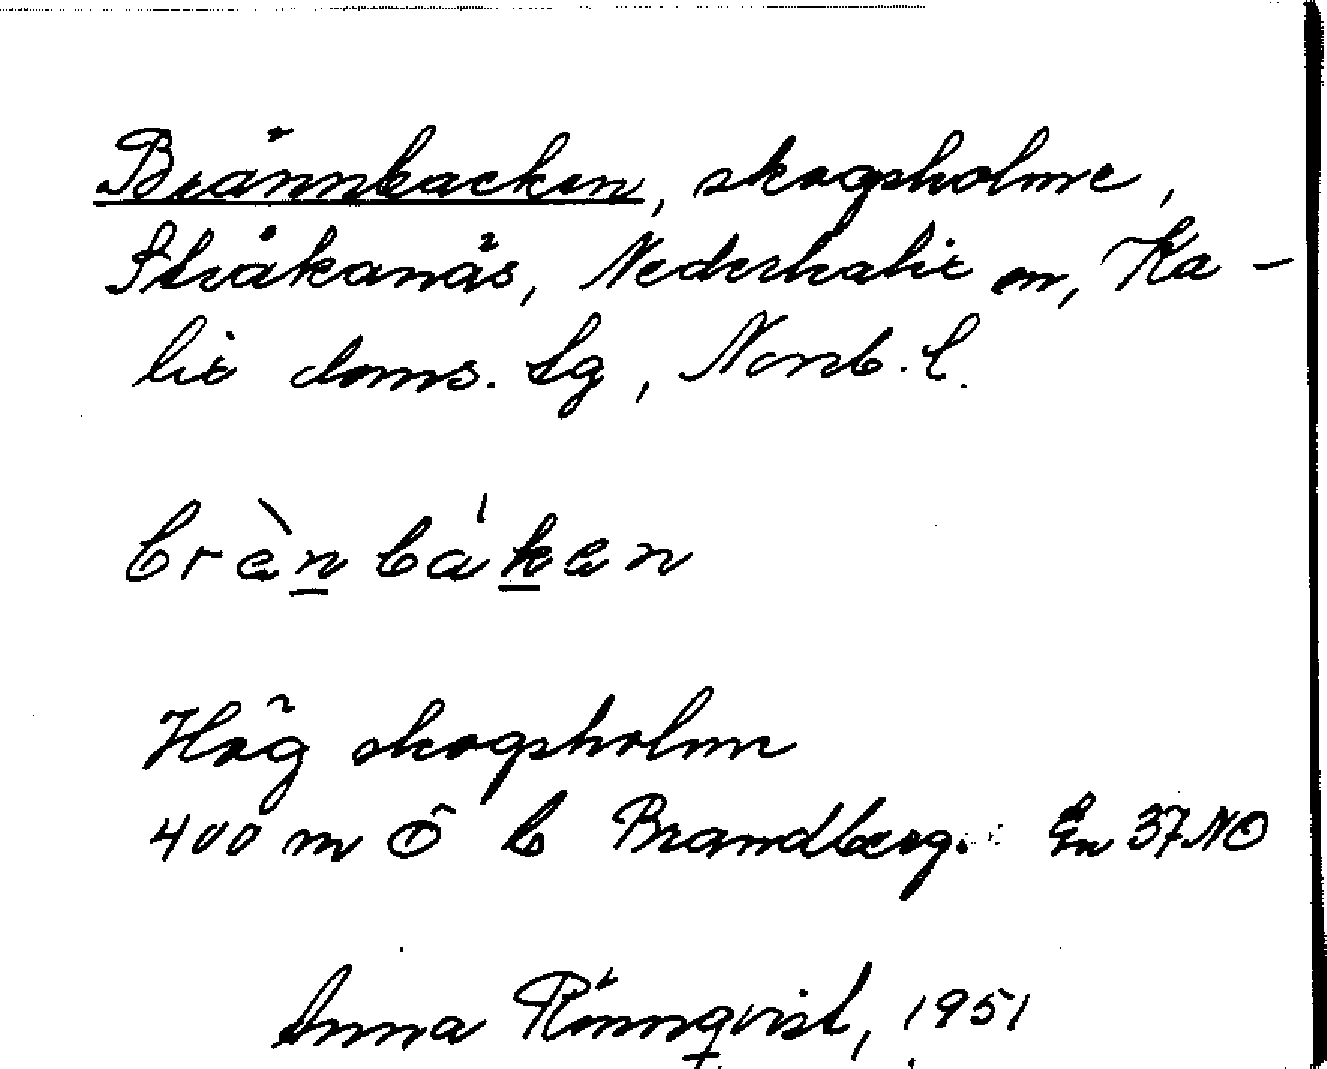 Brännbacken, skogsholme,
Stråkanäs, Nederkalix sn, Ka-
lix doms. sg, Norrb. l.
brènbák̲en
Hög skogsholme
400 m Ö b Brandberg. En 37 NO
Anna Rönnqvist, 1951